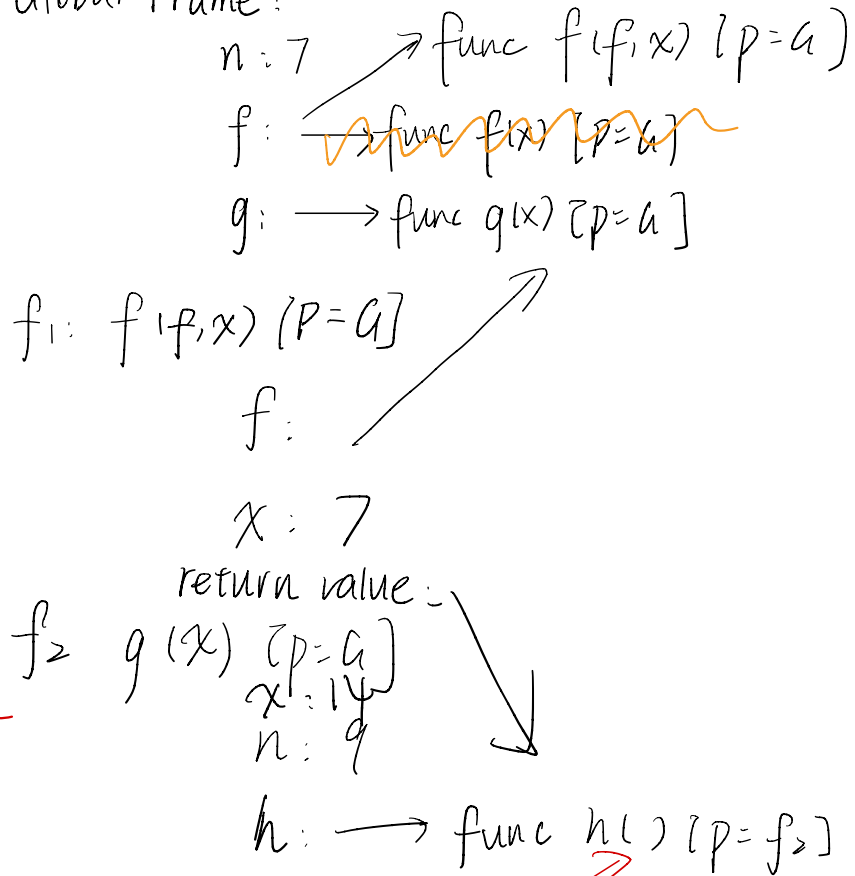 Global Frame:
n: 7
func f(f,x) [p=G]
f: func f(x) [p=G]
g: func g(x) [p=G]
f1: f(f,x) [P=G]
f:
x: 7
return value:
f2 g(x) [p=G]
x: 14
n: 9
h: func h() [p=f2]